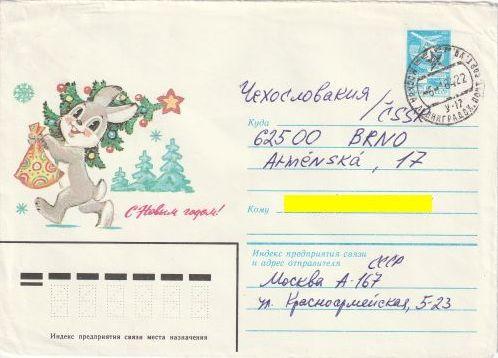 Чехословакия
/ČSSR
Куда
62500 BRNO
Arménská, 17
С Новым годом!
Кому
Индекс предприятия связи
и адрес отправителя
СССР
Москва А-167
ул. Красноармейская, 5-23
Индекс предприятия связи места назначения